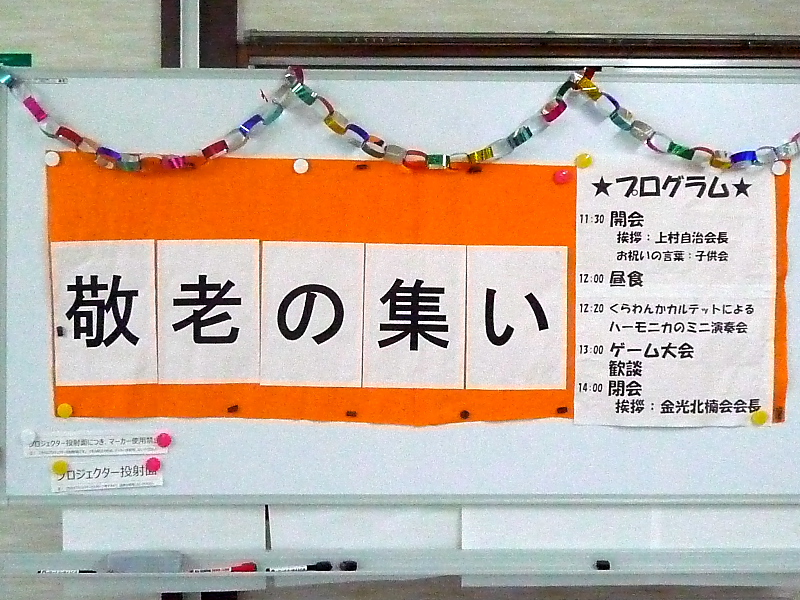 敬老の集い
★プログラム★
11:30 開会
挨拶：上村自治会長
お祝いの言葉：子供会
12:00 昼食
12:20 くらわんかカルテットによる
ハーモニカのミニ演奏会
13:00 ゲーム大会
歓談
14:00 閉会
挨拶：金光北楠会会長
プロジェクター投射面につき、マーカー使用禁止
プロジェクター投射面